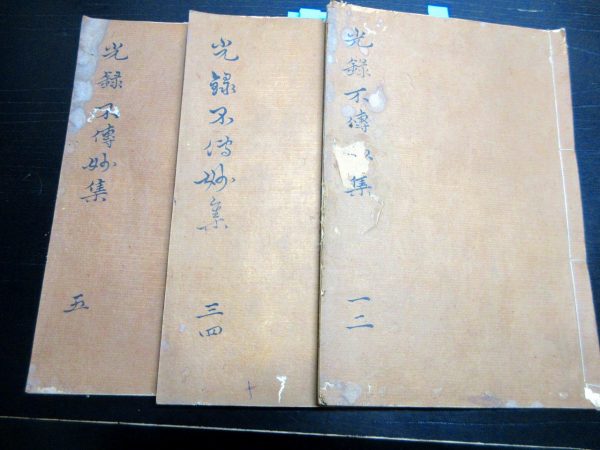 光錄不傳 集
一二
光錄不傳妙集
三四
光錄不傳妙集
五